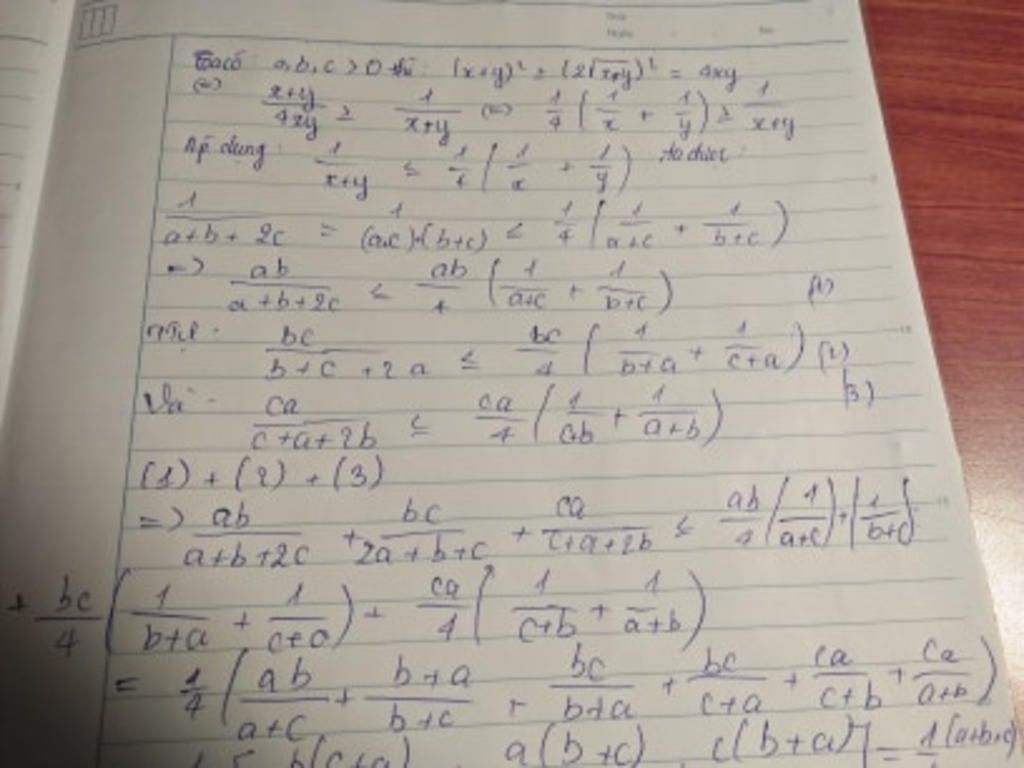 Ta có: a, b, c > 0 thì: (x+y)² ≥ (2√x+y)² = 4xy
(=) x+y/4xy ≥ 1/x+y (=) 1/4 (1/x + 1/y) ≥ 1/x+y
Áp dụng: 1/x+y ≤ 1/4 (1/x + 1/y) ta được:
1/a+b+2c = 1/(a+c)+(b+c) ≤ 1/4 (1/a+c + 1/b+c)
=> ab/a+b+2c ≤ ab/4 (1/a+c + 1/b+c) (1)
bc/b+c+2a ≤ bc/4 (1/b+a + 1/c+a) (2)
Và: ca/c+a+2b ≤ ca/4 (1/c+b + 1/a+b) (3)
(1) + (2) + (3)
=> ab/a+b+2c + bc/2a+b+c + ca/c+a+2b ≤ ab/4 (1/a+c) + (1/b+c)
+ bc/4 (1/b+a + 1/c+a) + ca/4 (1/c+b + 1/a+b)
= 1/4 (ab/a+c + b+a/b+c + bc/b+a + bc/c+a + ca/c+b + ca/a+b)
b(c+a) a(b+c) c(b+a) = 1 (a+b+c)